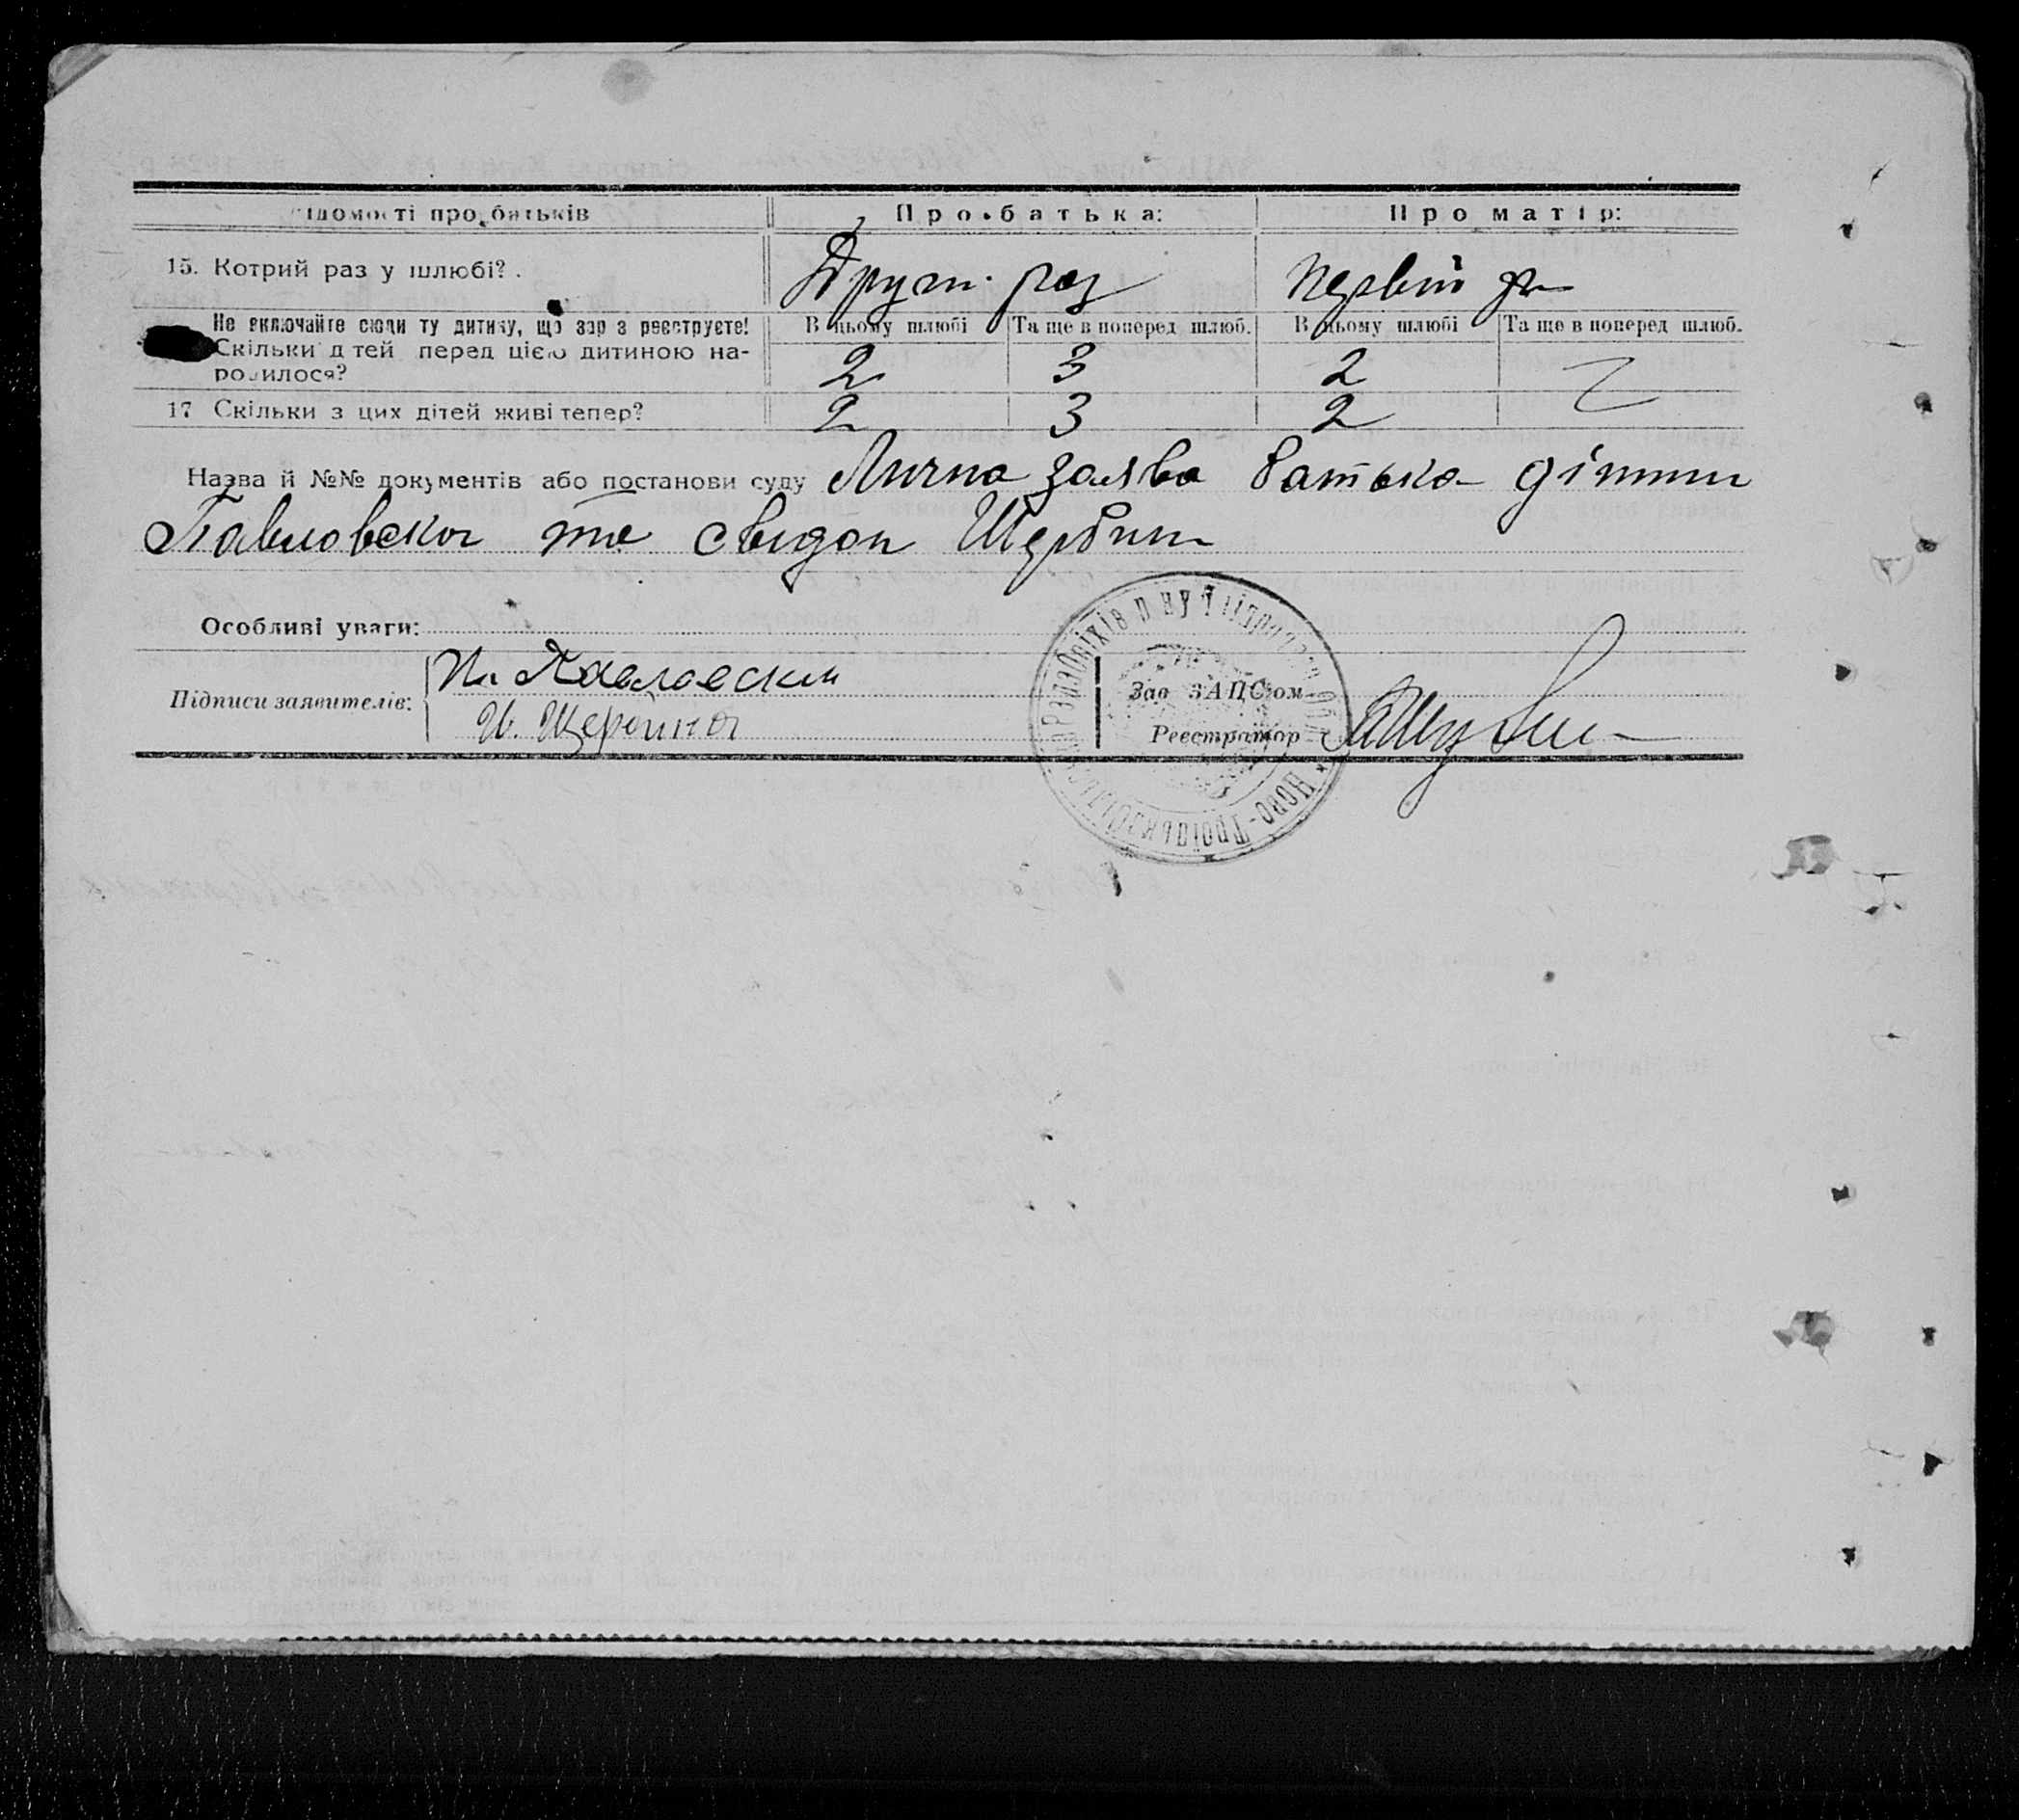 ідомості про батьків Про батька: Про матір:
15. Котрий раз у шлюбі? Други раз Первій
Не включайте сюди ту дитину, що зар з реєструєте! В цьому шлюбі Та ще в поперед шлюб. В цьому шлюбі Та ще в поперед шлюб.
Скільки д тей перед цією дитиною на-
родилося? 2 3 2
17 Скільки з цих дітей живі тепер? 2 3 2
Назва й №№ документів або постанови суду Лична заява батька дітини
Павловског та свидок Щербин
Особливі уваги:
Підписи заявителів: Павловский
И. Щербина
Зав ЗАЦСом
Реєстратор
Ново-Троїцька